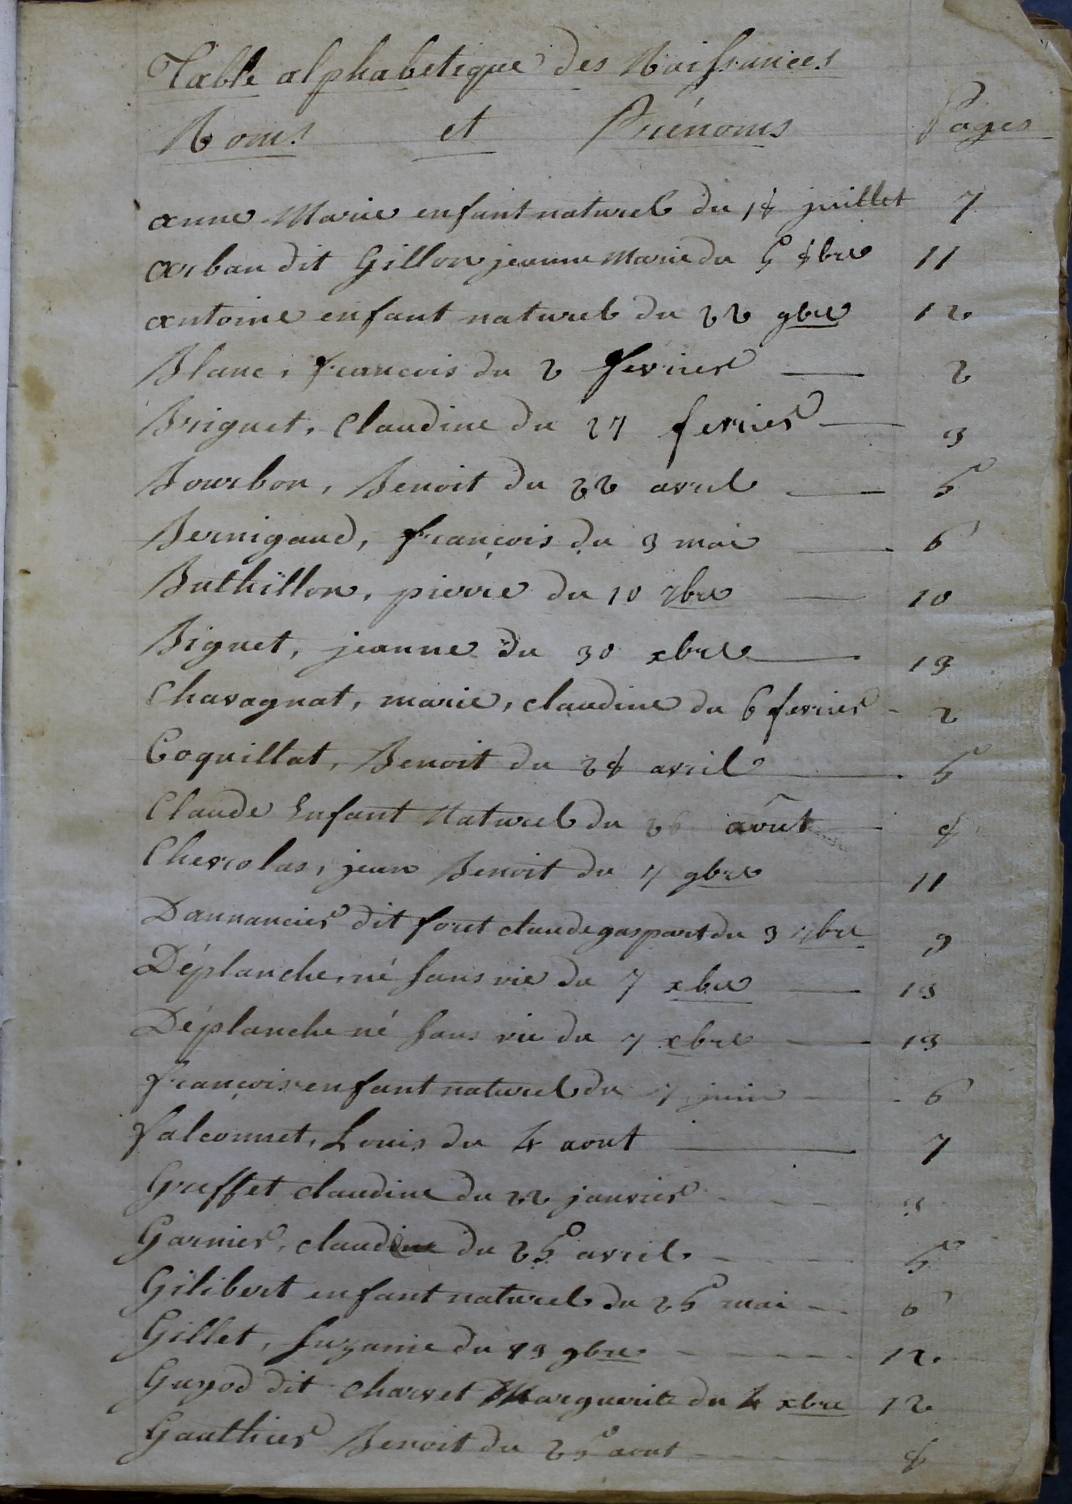 Table alphabetique des Naissances
Noms et Prénoms Pages
anne Marie enfant naturel du 18 juillet 7
arban dit Gillon jeanne Marie du 5 8bre 11
antoine enfant naturel du 22 9bre 12
Blanc, francois du 2 fevrier 2
Briguet, Claudine du 27 fevrier 3
Bourbon, Benoit du 22 avril 5
Bernigaud, françois du 3 mai 6
Buthillon, pierre du 10 7bre 10
Biguet, jeanne du 30 xbre 13
Chavagnat, marie, claudine du 6 fevrier 2
Coquillat, Benoit du 28 avril 5
Claude Enfant Naturel du 26 août 8
Chervolas, jean Benoit du 7 9bre 11
Dannancier dit foret claude gaspart du 3 7bre 9
Déplanche, né sans vie du 7 xbre 13
Déplanche né sans vie du 7 xbre 13
françois enfant naturel du 7 juin 6
falconnet, Louis du 4 aout 7
Greffet claudine du 22 janvier
Garnier, claudine du 25 avril 5
Gilibert enfant naturel du 25 mai 6
Gillet, Suzanne du 9bre 12
Guyod dit Charvet Marguerite du 4 xbre 12
Gauthier Benoit du 25 aout 8